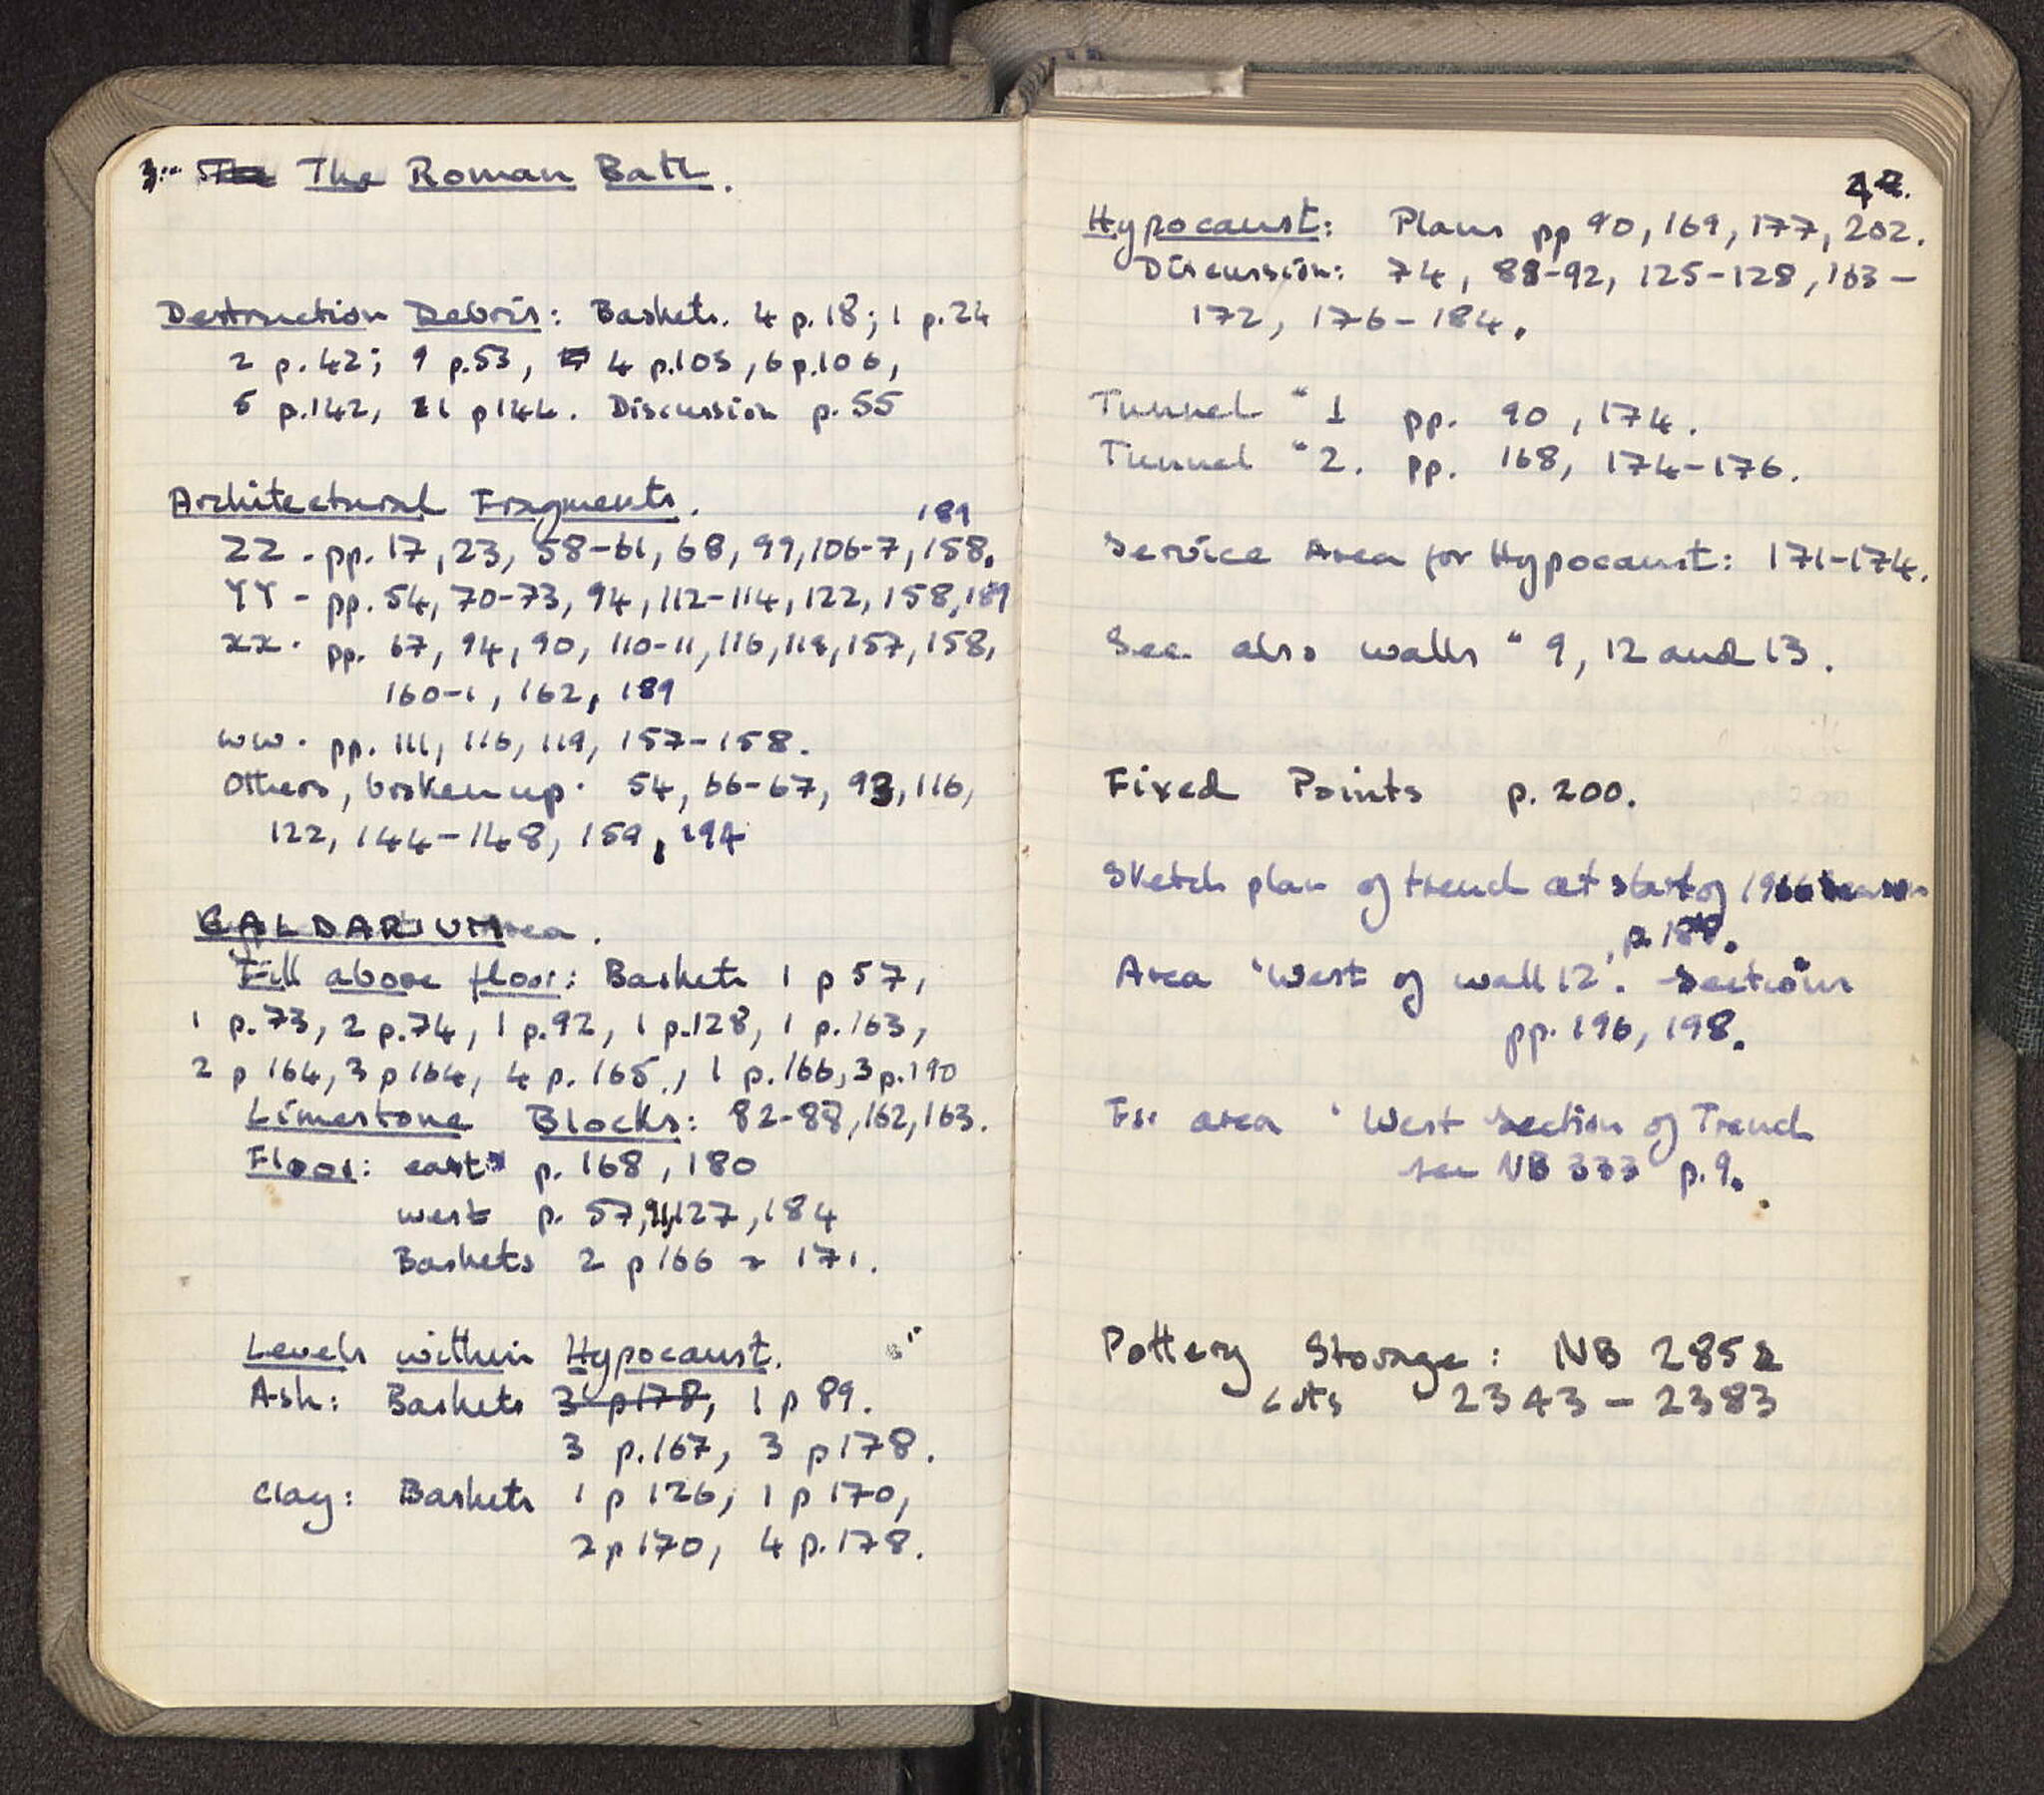 The Roman Bath.
Destruction Debris: Baskets. 4 p.18; 1 p.24
2 p.42; 9 p.53, 4 p.105, 6 p.106,
5 p.142, 21 p144. Discussion p.55
Architectural Fragments.
189
ZZ - pp. 17, 23, 58-61, 68, 99, 106-7, 158,
YY - pp. 54, 70-73, 94, 112-114, 122, 158, 189
XX - pp. 67, 94, 90, 110-11, 116, 119, 157, 158,
160-1, 162, 189
WW - pp. 111, 116, 119, 157-158.
Others, broken up. 54, 66-67, 93, 116,
122, 144-148, 159, 194
CALDARIUM
Fill above floor: Baskets 1 p 57,
1 p.73, 2 p.74, 1 p.92, 1 p.128, 1 p.163,
2 p 164, 3 p 164, 4 p. 165, 1 p.166, 3 p.190
Limestone Blocks: 82-88, 162, 163.
Floor: east p. 168, 180
west p. 57, 91, 127, 184
Baskets 2 p 166 171.
Levels within Hypocaust.
Ash: Baskets 3 p178, 1 p 89.
3 p.167, 3 p 178.
Clay: Baskets 1 p 126, 1 p 170,
2 p 170, 4 p.178.
Hypocaust: Plans pp 90, 169, 177, 202.
Discussion: 74, 88-92, 125-128, 163-
172, 176-184.
Tunnel " 1 pp. 90, 174.
Tunnel " 2. pp. 168, 174-176.
Service Area for Hypocaust: 171-174.
See also walls " 9, 12 and 13.
Fixed Points p. 200.
Sketch plan of trench at start of 1966 season
Area 'West of wall 12'. Sections
pp. 196, 198.
For area 'West Section of Trench
see NB 333 p.9.
Pottery Storage: NB 285
Lots 2343-2383